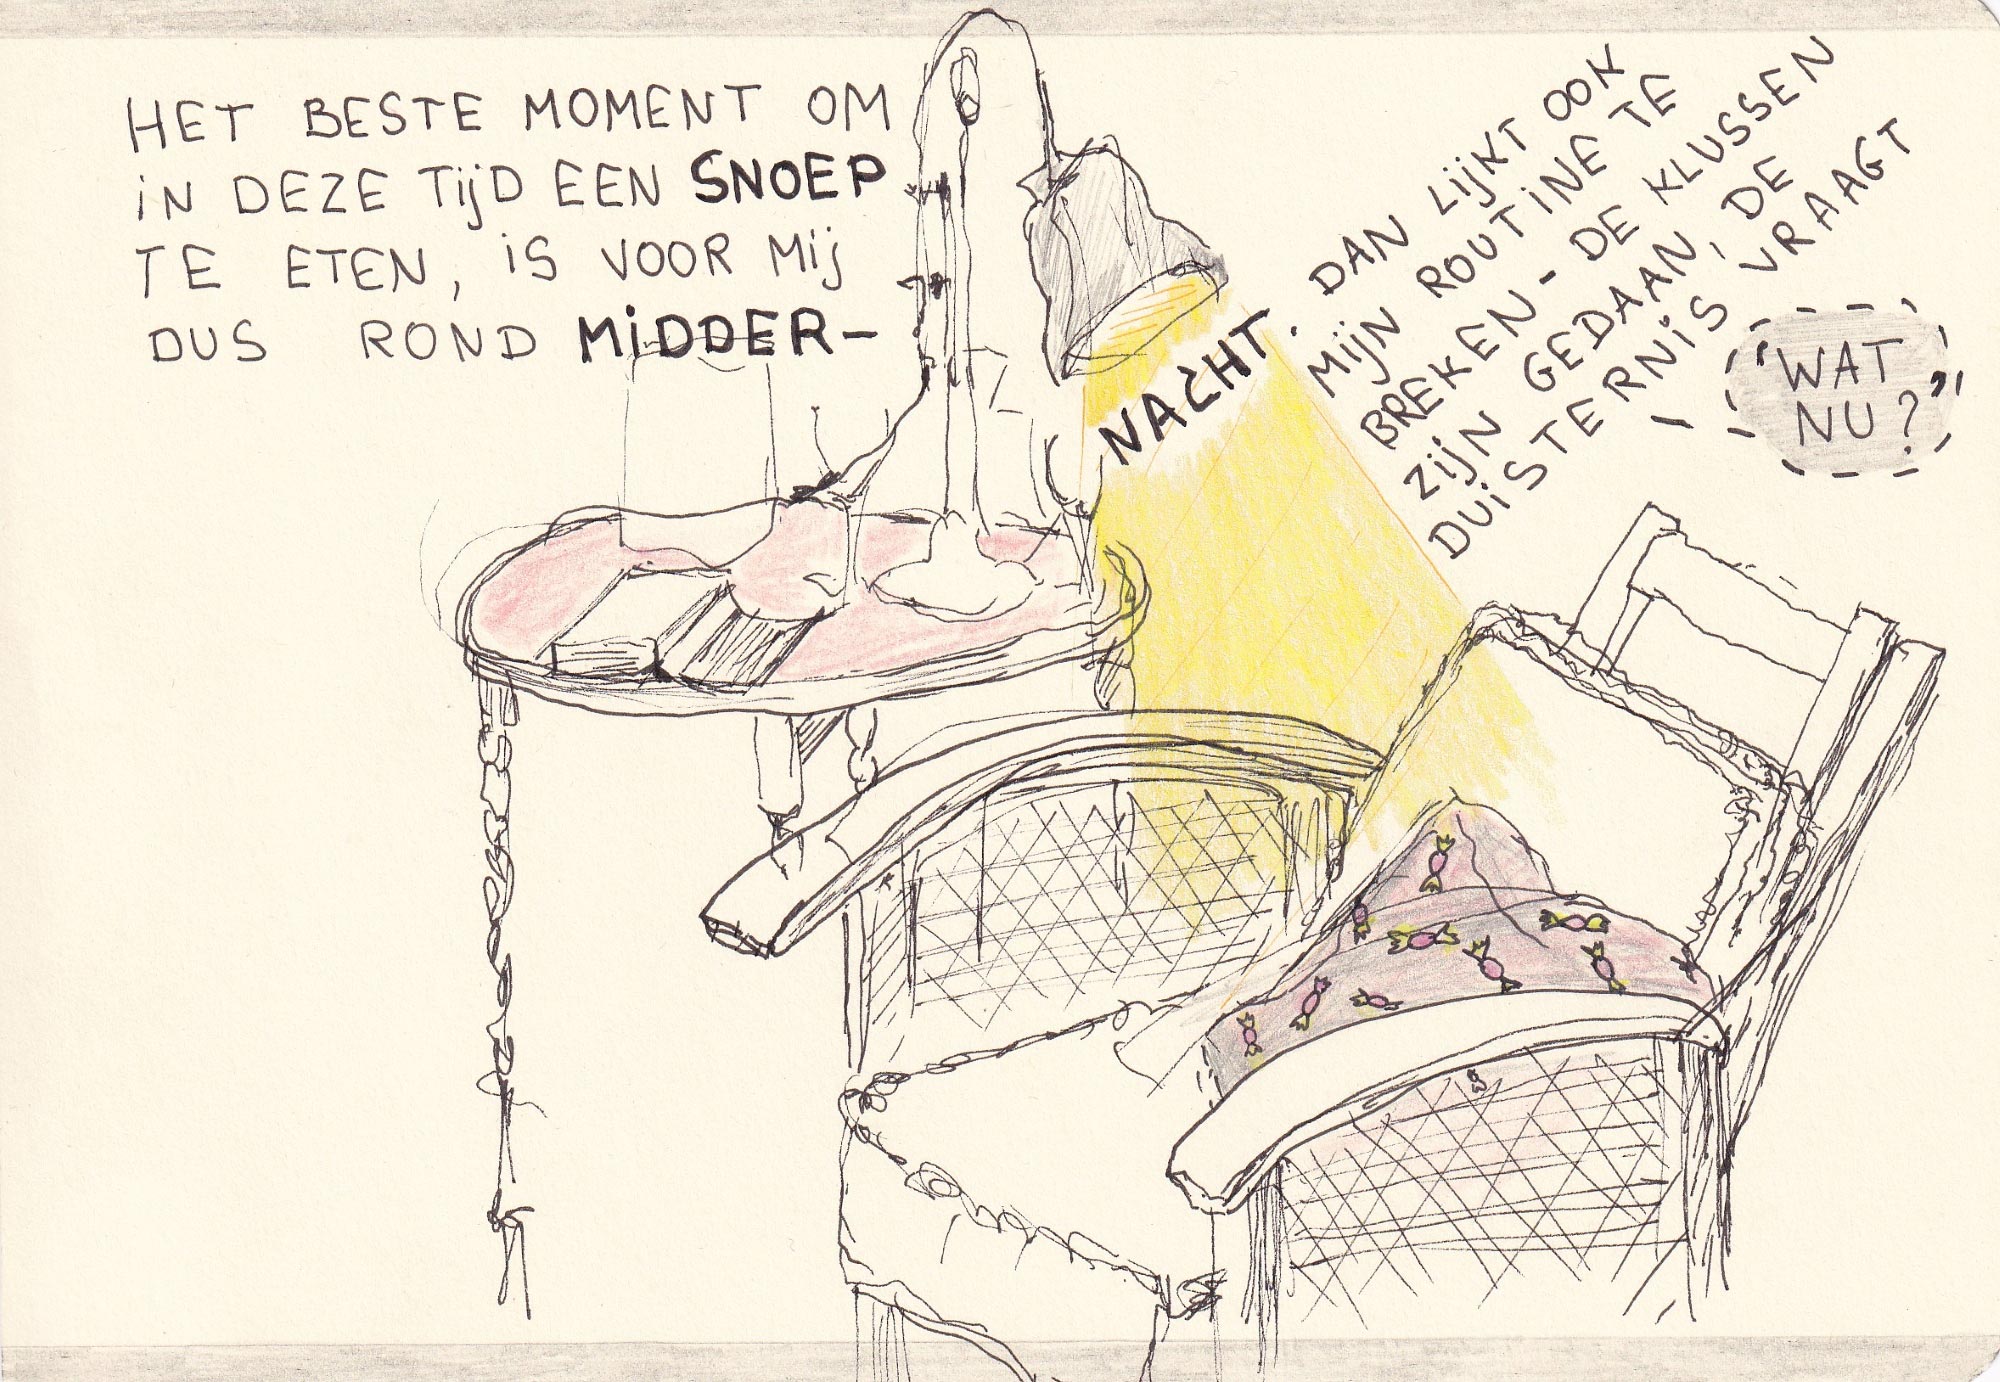 HET BESTE MOMENT OM
iN DEZE TijD EEN SNOEP
TE ETEN, iS VOOR Mij
DUS ROND MiDDER-
NACHT. DAN LijKT OOK
MijN ROUTiNE TE
BREKEN - DE KLUSSEN
ZijN GEDAAN, DE
DUiSTERNiS VRAAGT
"WAT
NU?"